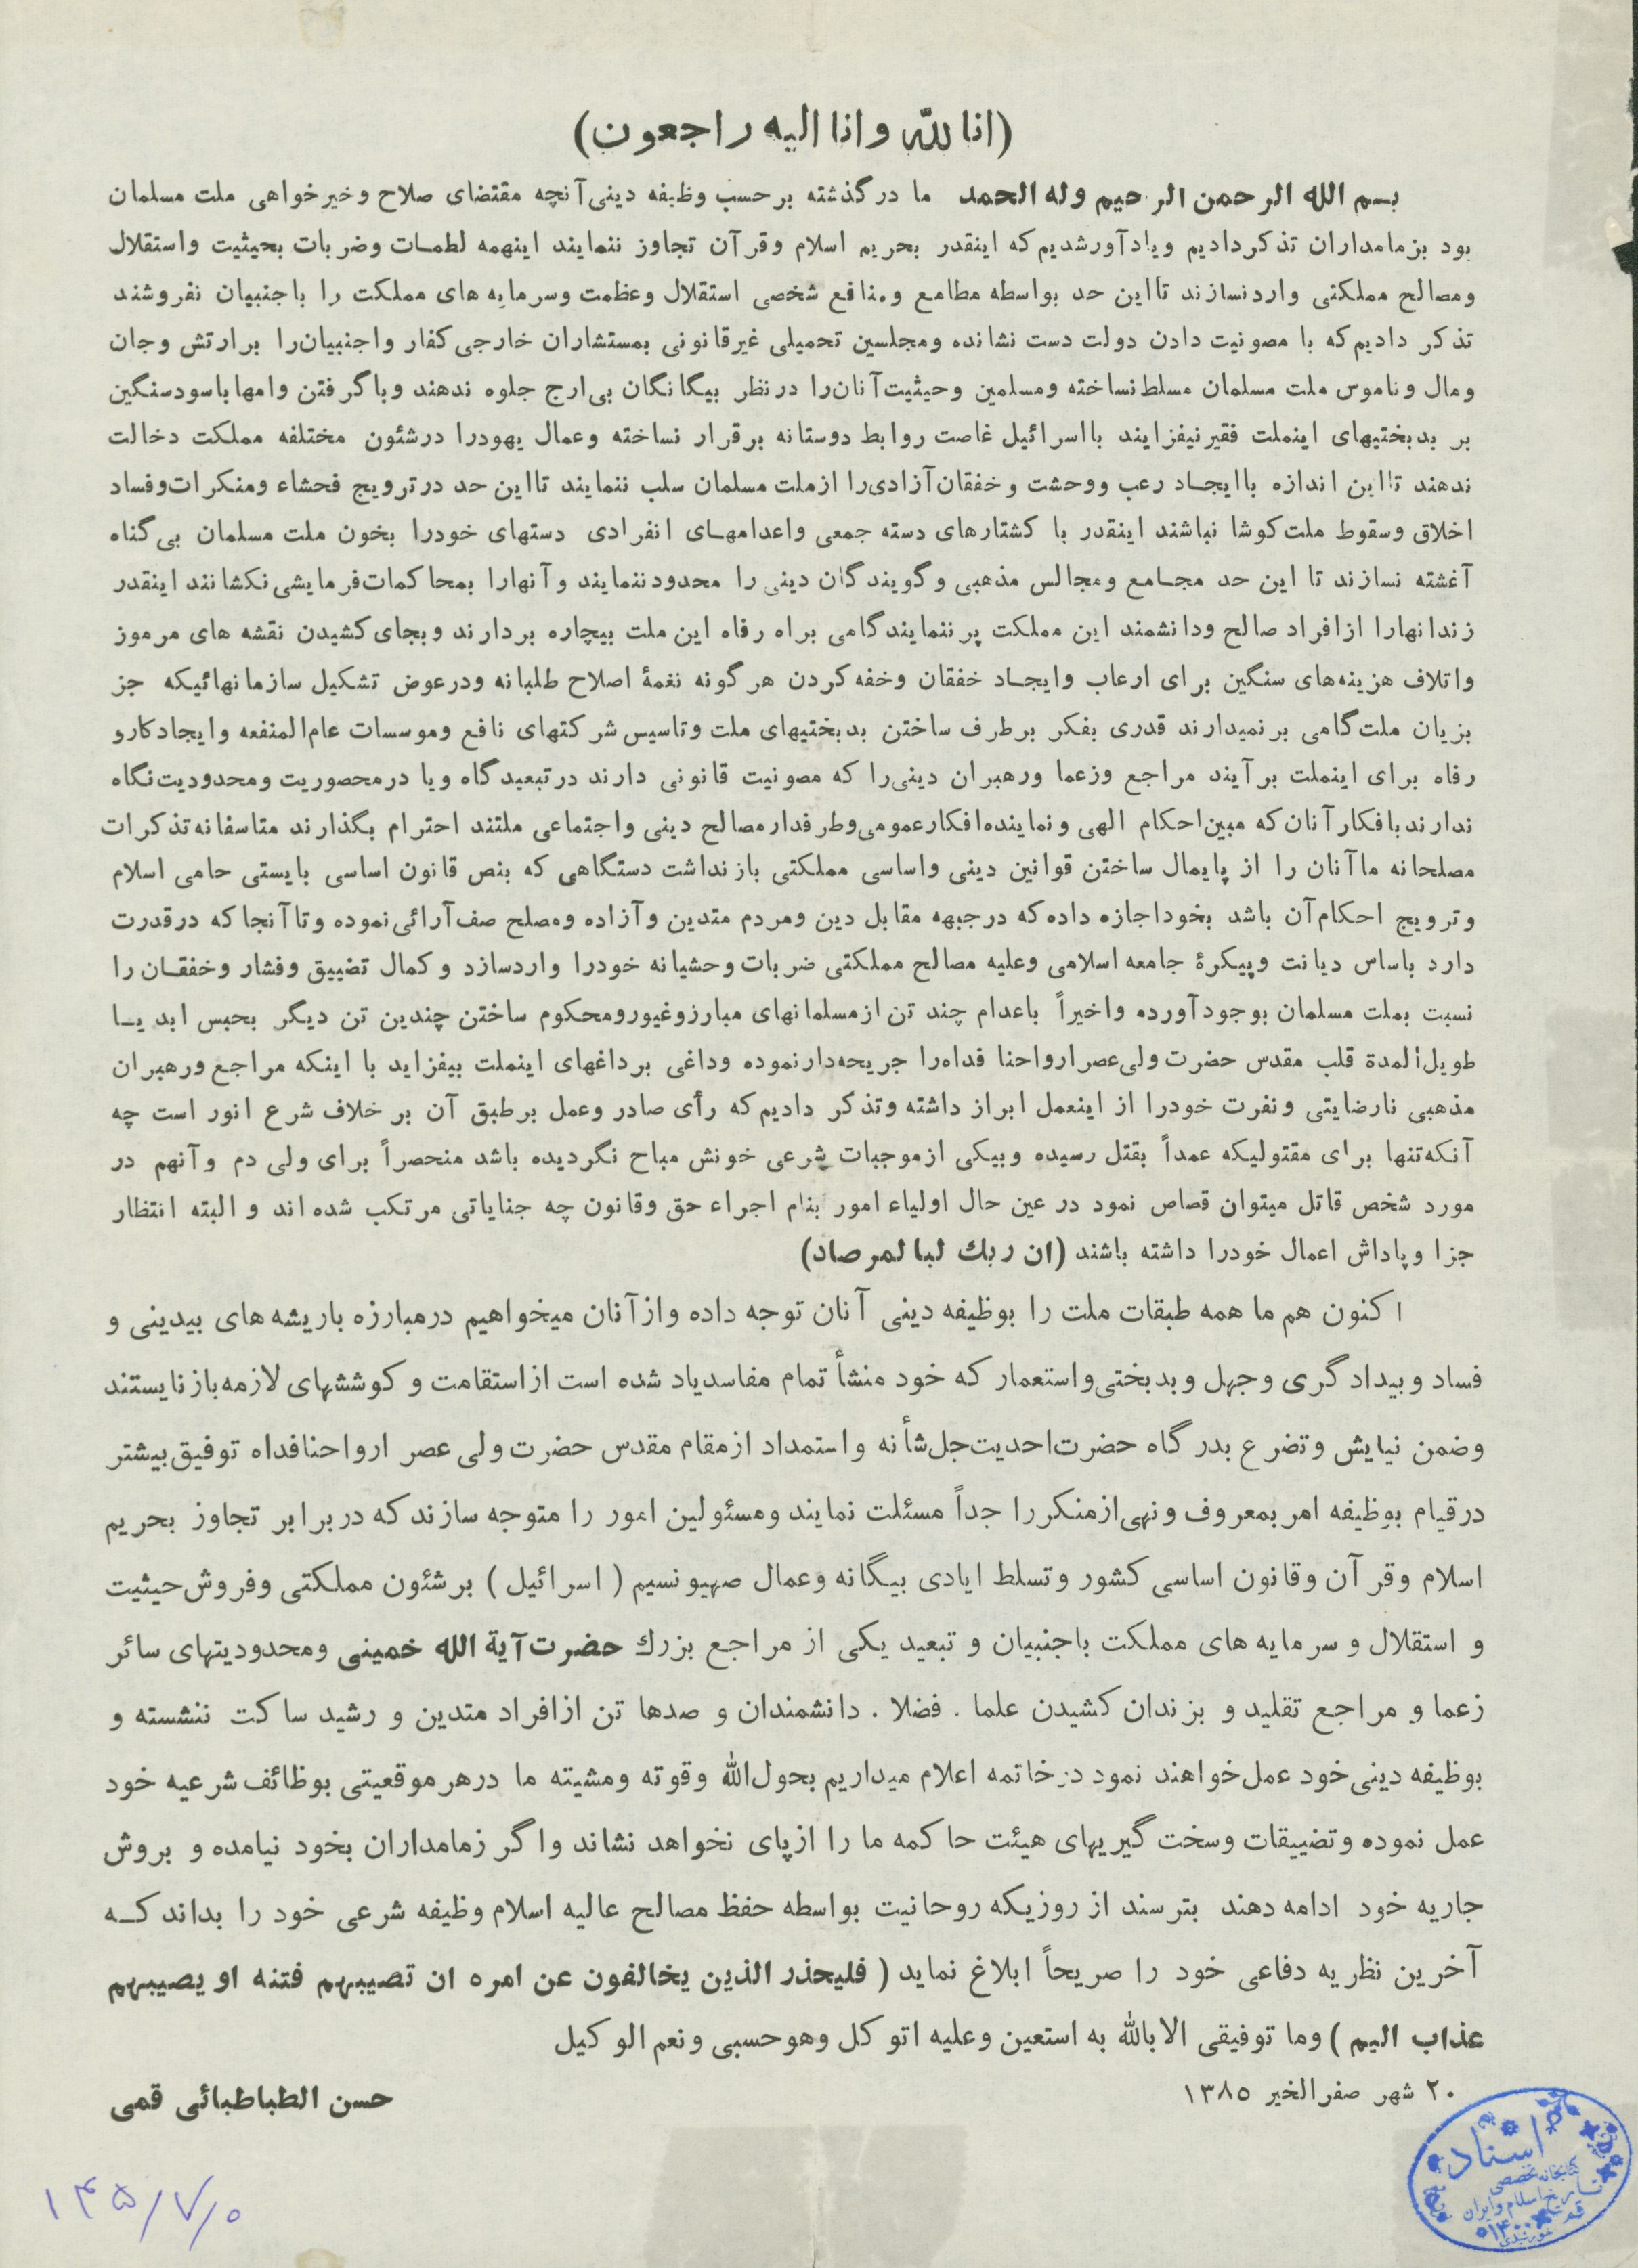 (انا لله وانا الیه راجعون)
بسم الله الرحمن الرحیم وله الحمد ما در گذشته بر حسب وظیفه دینی آنچه مقتضای صلاح وخیرخواهی ملت مسلمان
بود بزمامداران تذکر دادیم ویادآور شدیم که اینقدر بحریم اسلام وقرآن تجاوز ننمایند اینهمه لطمات وضربات بحیثیت واستقلال
ومصالح مملکتی وارد نسازند تا این حد بواسطه مطامع ومنافع شخصی استقلال وعظمت وسرمایه های مملکت را باجنبیان نفروشند
تذکر دادیم که با مصونیت دادن دولت دست نشانده ومجلسین تحمیلی غیرقانونی بمستشاران خارجی کفار واجنبیان را بر ارتش وجان
ومال وناموس ملت مسلمان مسلط نساخته ومسلمین وحیثیت آنان را در نظر بیگانگان بی ارج جلوه ندهند وباگرفتن وامها باسود سنگین
بر بدبختیهای اینملت فقیر نیفزایند بااسرائیل غاصت روابط دوستانه برقرار نساخته وعمال یهود را در شئون مختلفه مملکت دخالت
ندهند تا این اندازه باایجاد رعب ووحشت وخفقان آزادی را از ملت مسلمان سلب ننمایند تا این حد در ترویج فحشاء ومنکرات وفساد
اخلاق وسقوط ملت کوشا نباشند اینقدر با کشتارهای دسته جمعی واعدامهای انفرادی دستهای خود را بخون ملت مسلمان بی گناه
آغشته نسازند تا این حد مجامع ومجالس مذهبی وگویندگان دینی را محدود ننمایند وآنهارا بمحاکمات فرمایشی نکشانند اینقدر
زندانهارا از افراد صالح ودانشمند این مملکت پر ننمایند گامی براه رفاه این ملت بیچاره بردارند وبجای کشیدن نقشه های مرموز
واتلاف هزینه های سنگین برای ارعاب وایجاد خفقان وخفه کردن هر گونه نغمهٔ اصلاح طلبانه ودرعوض تشکیل سازمانهائیکه جز
بزیان ملت گامی بر نمیدارند قدری بفکر برطرف ساختن بدبختیهای ملت وتاسیس شرکتهای نافع وموسسات عام المنفعه وایجاد کارو
رفاه برای اینملت برآیند مراجع وزعما ورهبران دینی را که مصونیت قانونی دارند در تبعیدگاه ویا در محصوریت ومحدودیت نگاه
ندارند بافکار آنان که مبین احکام الهی ونماینده افکار عمومی وطرفدار مصالح دینی واجتماعی ملتند احترام بگذارند متاسفانه تذکرات
مصلحانه ما آنان را از پایمال ساختن قوانین دینی واساسی مملکتی باز نداشت دستگاهی که بنص قانون اساسی بایستی حامی اسلام
وترویج احکام آن باشد بخود اجازه داده که در جبهه مقابل دین ومردم متدین وآزاده ومصلح صف آرائی نموده وتا آنجا که در قدرت
دارد باساس دیانت وپیکرهٔ جامعه اسلامی وعلیه مصالح مملکتی ضربات وحشیانه خودرا وارد سازد و کمال تضییق وفشار وخفقان را
نسبت بملت مسلمان بوجود آورده واخیراً باعدام چند تن از مسلمانهای مبارز وغیور ومحکوم ساختن چندین تن دیگر بحبس ابد یا
طویل المدة قلب مقدس حضرت ولی عصر ارواحنا فداه را جریحه دار نموده وداغی برداغهای اینملت بیفزاید با اینکه مراجع ورهبران
مذهبی نارضایتی ونفرت خودرا از اینعمل ابراز داشته وتذکر دادیم که رأی صادر وعمل بر طبق آن بر خلاف شرع انور است چه
آنکه تنها برای مقتولیکه عمداً بقتل رسیده وبیکی از موجبات شرعی خونش مباح نگردیده باشد منحصراً برای ولی دم وآنهم در
مورد شخص قاتل میتوان قصاص نمود در عین حال اولیاء امور بنام اجراء حق وقانون چه جنایاتی مرتکب شده اند و البته انتظار
جزا وپاداش اعمال خودرا داشته باشند (ان ربك لبا لمرصاد)
اکنون هم ما همه طبقات ملت را بوظیفه دینی آنان توجه داده واز آنان میخواهیم در مبارزه باریشه های بیدینی و
فساد وبیدادگری وجهل وبدبختی واستعمار که خود منشأ تمام مفاسد یاد شده است از استقامت وکوششهای لازمه باز نایستند
وضمن نیایش وتضرع بدرگاه حضرت احدیت جل شأنه واستمداد از مقام مقدس حضرت ولی عصر ارواحنا فداه توفیق بیشتر
در قیام بوظیفه امر بمعروف ونهی از منکر را جداً مسئلت نمایند ومسئولین امور را متوجه سازند که در برابر تجاوز بحریم
اسلام وقرآن وقانون اساسی کشور وتسلط ایادی بیگانه وعمال صهیونسیم (اسرائیل) بر شئون مملکتی وفروش حیثیت
و استقلال و سرمایه های مملکت باجنبیان و تبعید یکی از مراجع بزرك حضرت آیة الله خمینی ومحدودیتهای سائر
زعما و مراجع تقلید و بزندان کشیدن علما . فضلا . دانشمندان و صدها تن از افراد متدین و رشید ساکت ننشسته و
بوظیفه دینی خود عمل خواهند نمود در خاتمه اعلام میداریم بحول الله وقوته ومشیته ما در هر موقعیتی بوظائف شرعیه خود
عمل نموده وتضییقات وسخت گیریهای هیئت حاکمه ما را از پای نخواهد نشاند واگر زمامداران بخود نیامده و بروش
جاریه خود ادامه دهند بترسند از روزیکه روحانیت بواسطه حفظ مصالح عالیه اسلام وظیفه شرعی خود را بداند که
آخرین نظریه دفاعی خود را صریحاً ابلاغ نماید (فلیحذر الذین یخالفون عن امره ان تصیبهم فتنه او یصیبهم
عذاب الیم) وما توفیقی الا بالله به استعین وعلیه اتوکل وهو حسبی ونعم الوکیل
۲۰ شهر صفر الخیر ۱۳۸۵
حسن الطباطبائی قمی
اسناد
کتابخانه تخصصی
تاریخ اسلام و ایران
قم
۱۴۵/۷/۰